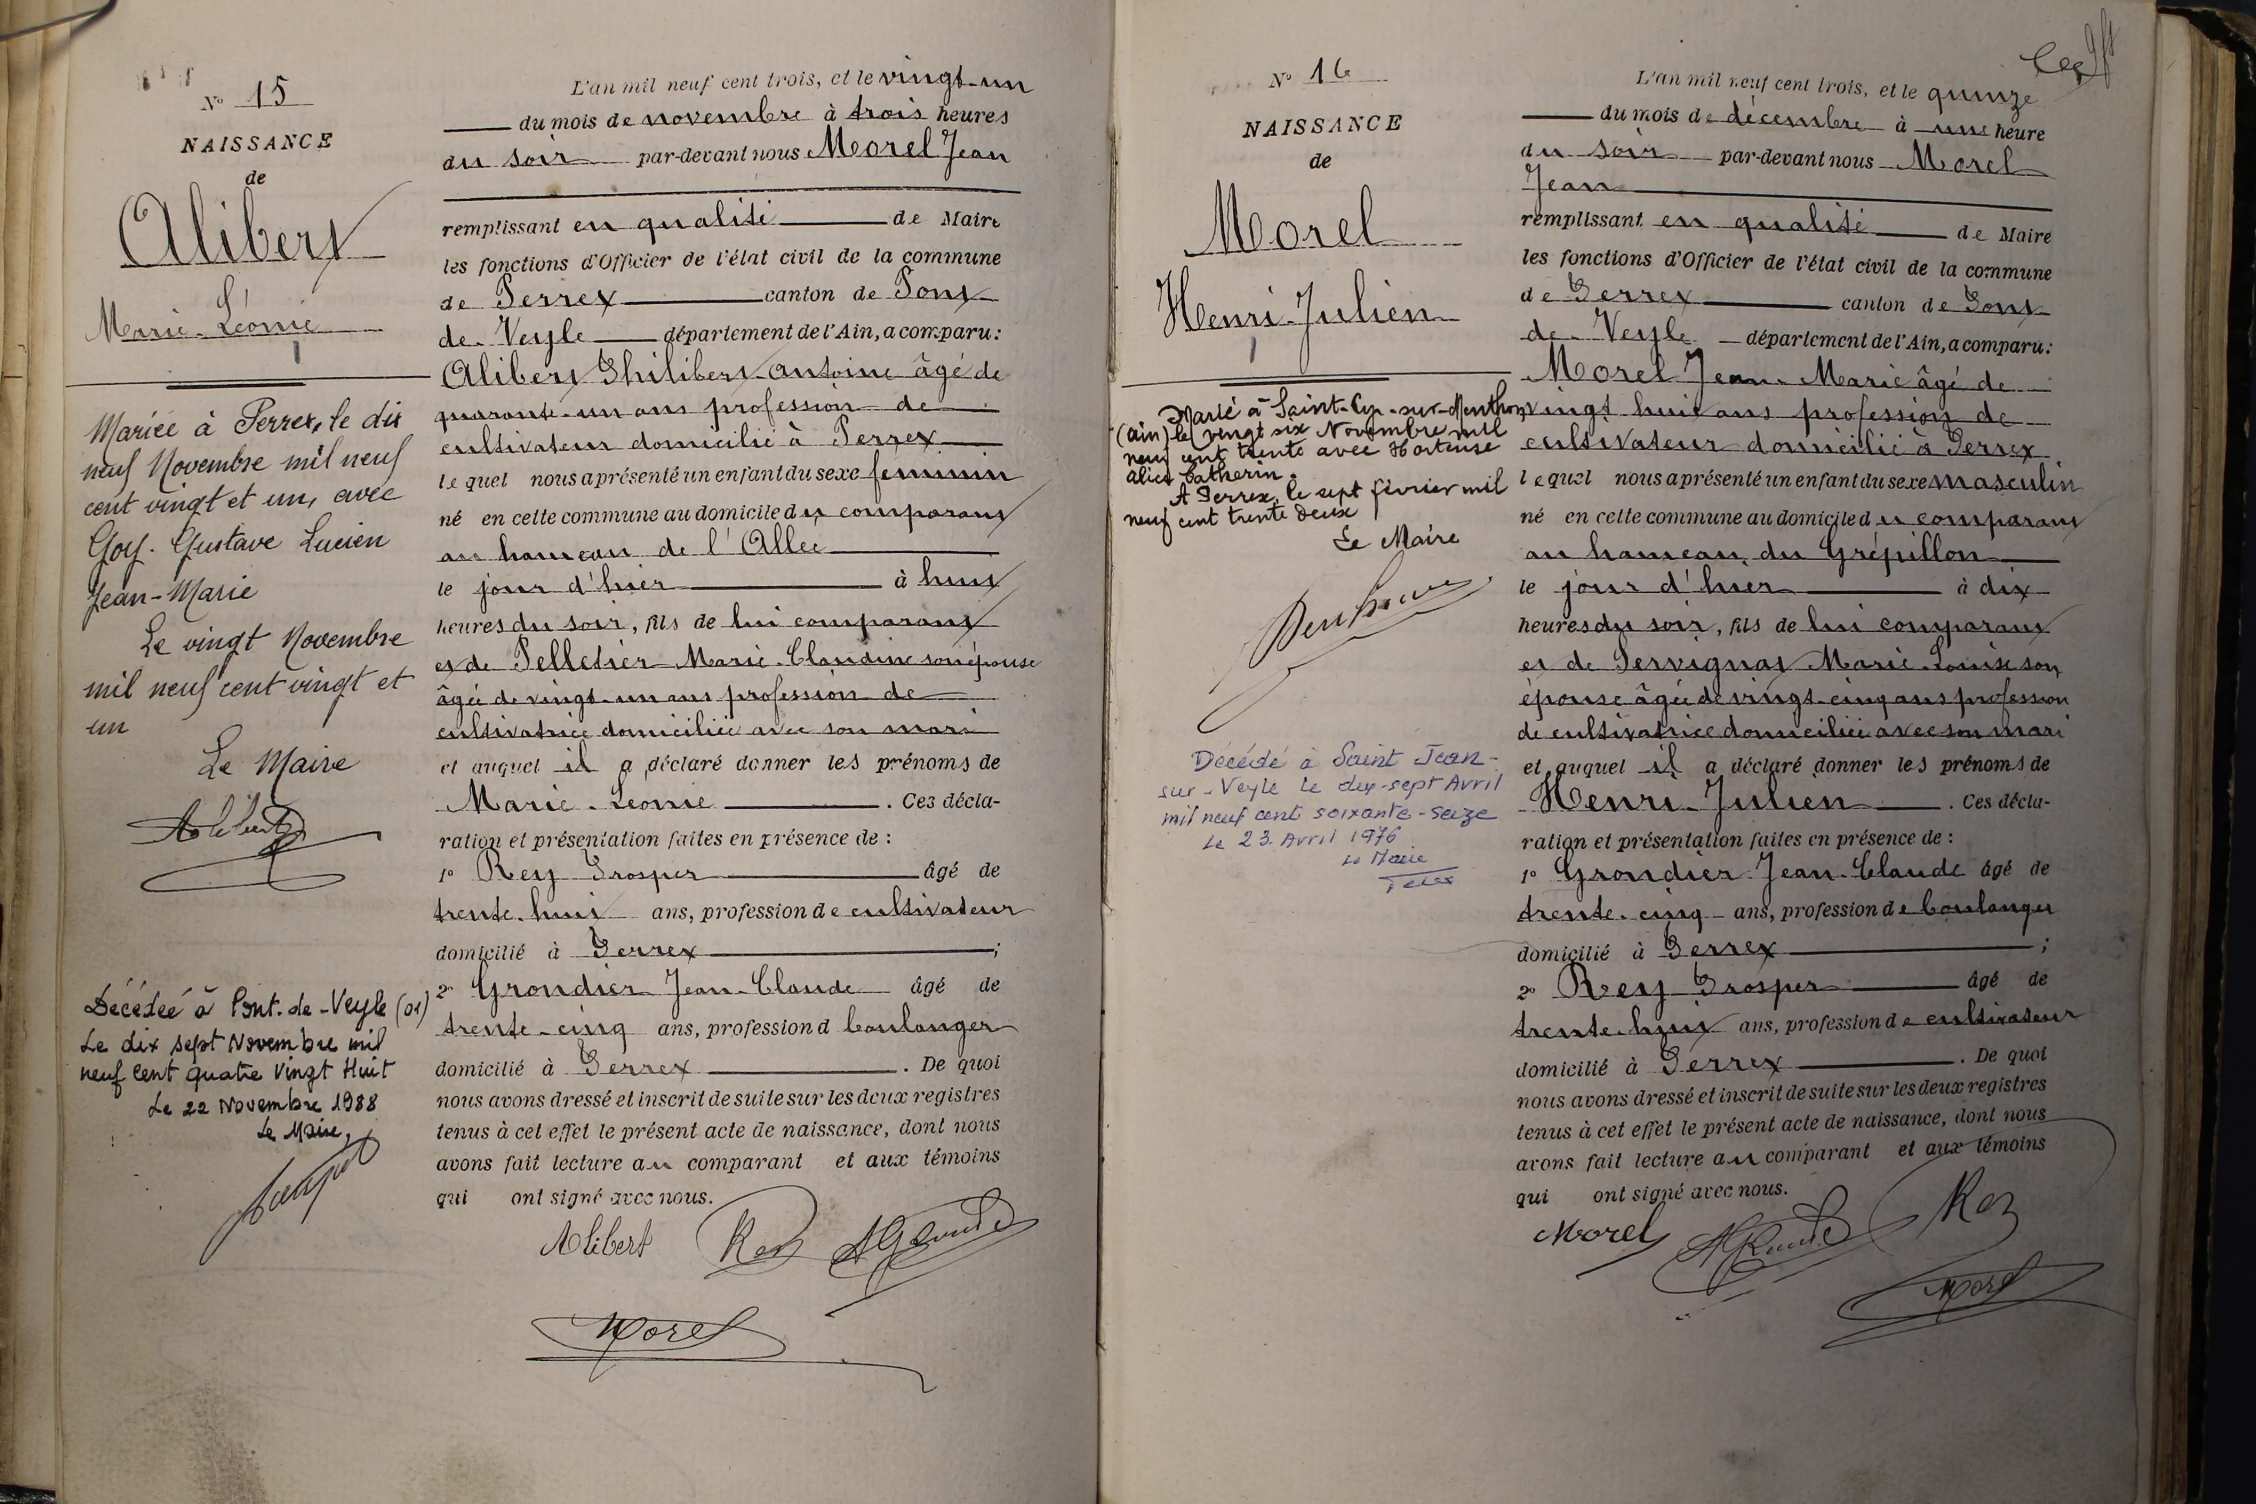 N° 15
NAISSANCE
de
Alibert
Marie-Léonie
Mariée à Perrex, le dix
neuf Novembre mil neuf
cent vingt et un, avec
Goy. Gustave Lucien
Jean-Marie
Le vingt Novembre
mil neuf cent vingt et
un
Le Maire
Alibert
Décédée à Pont-de-Veyle (01)
Le dix sept Novembre mil
neuf cent quatre Vingt Huit
Le 22 Novembre 1988
Le Maire,
L'an mil neuf cent trois, et le vingt-un
du mois de novembre à trois heures
du soir par-devant nous Morel Jean
remplissant en qualité de Maire
les fonctions d'Officier de l'état civil de la commune
de Perrex canton de Pont
de-Veyle département de l'Ain, a comparu:
Alibert Philibert-Antoine âgé de
quarante-un ans profession de
cultivateur domicilié à Perrex
lequel nous a présenté un enfant du sexe féminin
né en cette commune au domicile du comparant
au hameau de l'Allée
le jour d'hier à huit
heures du soir, fils de lui comparant
et de Pelletier Marie-Claudine son épouse
âgée de vingt-un ans profession de
cultivatrice domiciliée avec son mari
et auquel il a déclaré donner les prénoms de
Marie-Léonie. Ces décla-
ration et présentation faites en présence de :
1° Rey Prosper âgé de
trente-huit ans, profession de cultivateur
domicilié à Perrex ;
2° Grondier Jean-Claude âgé de
trente-cinq ans, profession d boulanger
domicilié à Perrex. De quoi
nous avons dressé et inscrit de suite sur les deux registres
tenus à cet effet le présent acte de naissance, dont nous
avons fait lecture au comparant et aux témoins
qui ont signé avec nous.
Alibert Rey
Morel
N° 16
NAISSANCE
de
Morel
Henri-Julien
Marié à Saint-Cyr-sur-Menthon
(Ain) le vingt six Novembre mil
neuf cent trente avec Hortense
Alice Catherin.
A Perrex, le sept février mil
neuf cent trente deux
Le Maire
Décédé à Saint Jean-
sur-Veyle le dix-sept Avril
mil neuf cent soixante-seize
Le 23 Avril 1976
Le Maire
L'an mil neuf cent trois, et le quinze
du mois de décembre à une heure
du soir par-devant nous Morel
Jean
remplissant en qualité de Maire
les fonctions d'Officier de l'état civil de la commune
de Perrex canton de Pont
de-Veyle département de l'Ain, a comparu:
Morel Jean-Marie âgé de
vingt huit ans profession de
cultivateur domicilié à Perrex
lequel nous a présenté un enfant du sexe masculin
né en cette commune au domicile du comparant
au hameau du Grépillon
le jour d'hier à dix
heures du soir, fils de lui comparant
et de Pervignat Marie-Louise son
épouse âgée de vingt-cinq ans profession
de cultivatrice domiciliée avec son mari
et auquel il a déclaré donner les prénoms de
Henri-Julien. Ces décla-
ration et présentation faites en présence de :
1° Grondier Jean-Claude âgé de
trente-cinq ans, profession de boulanger
domicilié à Perrex ;
2° Rey Prosper âgé de
trente-huit ans, profession de cultivateur
domicilié à Perrex. De quoi
nous avons dressé et inscrit de suite sur les deux registres
tenus à cet effet le présent acte de naissance, dont nous
avons fait lecture au comparant et aux témoins
qui ont signé avec nous.
Morel Rey
Morel